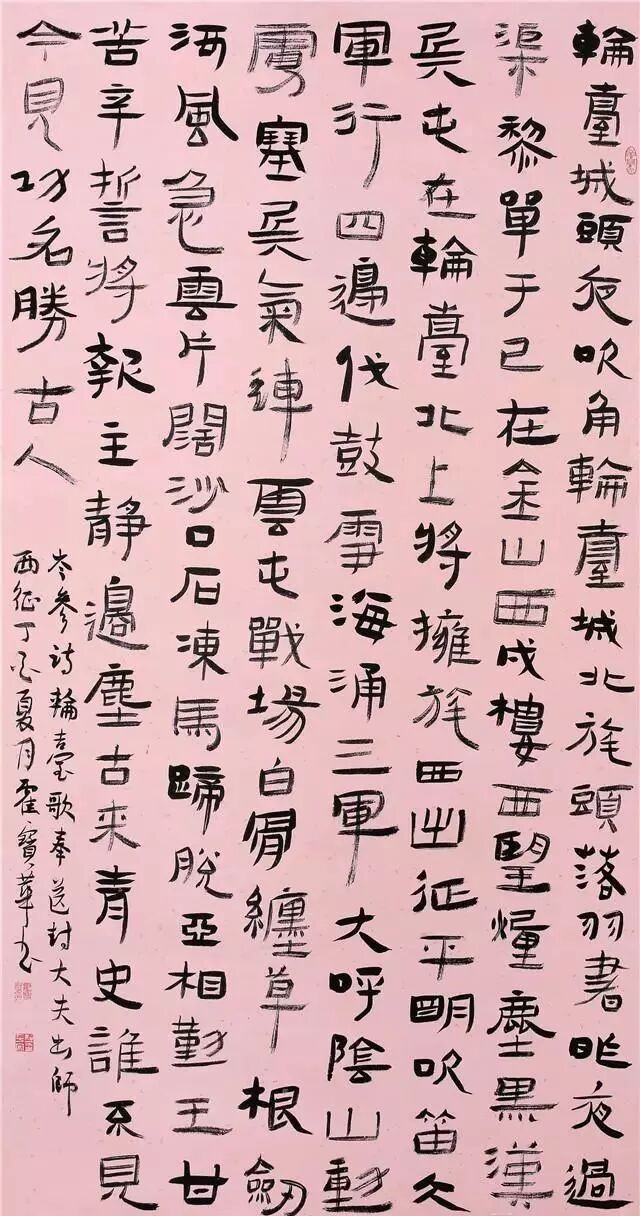 輪臺城頭夜吹角輪臺城北旄頭落羽書昨夜過
渠黎單于已在金山西戍樓西望煙塵黑漢
兵屯在輪臺北上將擁旄西出征平明吹笛大
軍行四邊伐鼓雪海涌三軍大呼陰山動
虜塞兵氣連雲屯戰場白骨纏草根劍
河風急雲片闊沙口石凍馬蹄脫亞相勤王甘
苦辛誓將報主靜邊塵古來青史誰不見
今見功名勝古人
岑參詩輪臺歌奉送封大夫出師
西征丁酉夏月霍寶華書